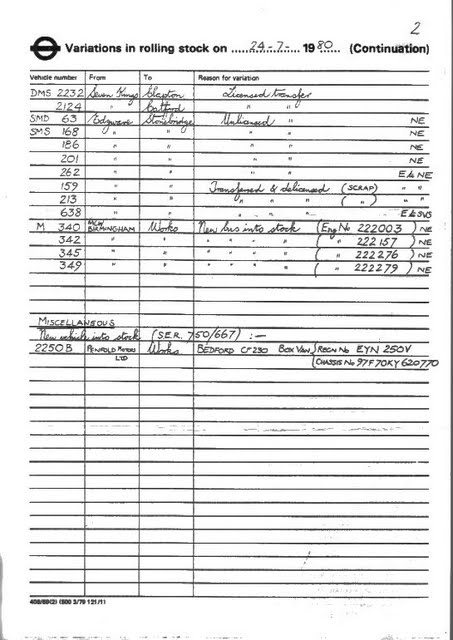 2
Variations in rolling stock on 24-7- 1980 (Continuation)
Vehicle number From To Reason for variation
DMS 2232 Seven Kings Clapton Licensed transfer
2124 " " "
SMD 63 Edgware Stonebridge Unlicensed " NE
SMS 168 " " " " NE
186 " " " " NE
201 " " " " NE
262 " " " " E & NE
159 Transferred & delicensed (SCRAP) " "
213 " " " ( " ) " "
638 " " " " " E & SVS
M 340 MCW BIRMINGHAM Works New bus into stock (Eng No 222003) NE
342 " " " " " " ( " 222157) NE
345 " " " " " " ( " 222276) NE
349 " " " " " " ( " 222279) NE
MISCELLANEOUS
New vehicle into stock (S.E.R. 750/667) :-
2250B PENFOLD MOTORS LTD Works BEDFORD CF250 BOX VAN (REGN No EYN 250V
(CHASSIS No 97F70KY 620770
409/89(2) (500 3/79 121/1)